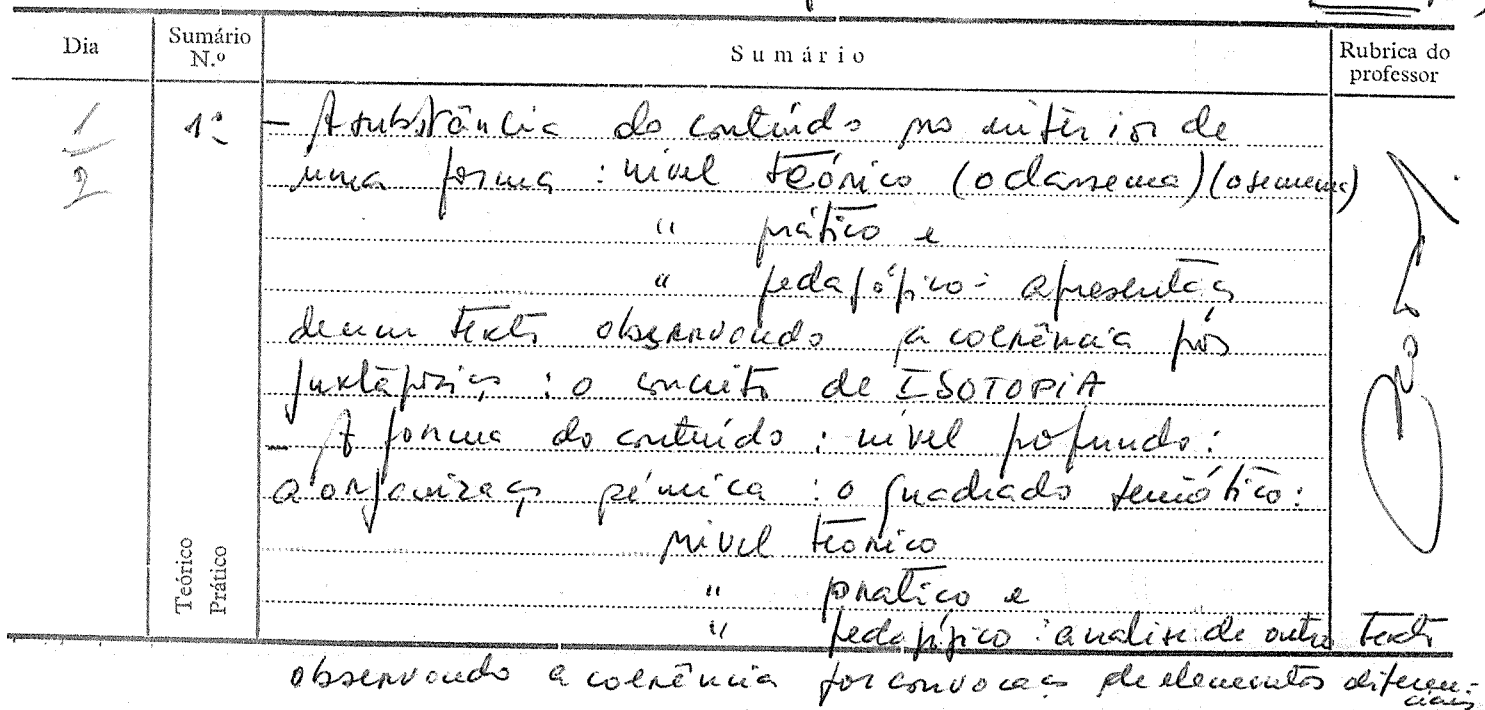 Dia
Sumário N.º
Sumário
Rubrica do professor
1/2
1º
- A substância do conteúdo no interior de
uma forma : nível teórico (o classema) (o semema)
" prático e
" pedagógico : apresentaç
de um texto observando a coerência por
juxtaposiç : o conceito de ISOTOPIA
- A forma do conteúdo : nível profundo :
a organizaç sémica : o quadrado semiótico :
nível teórico
" prático e
" pedagógico : analise de outro texto
observando a coerência por convocaç de elementos diferenciais
Teórico
Prático